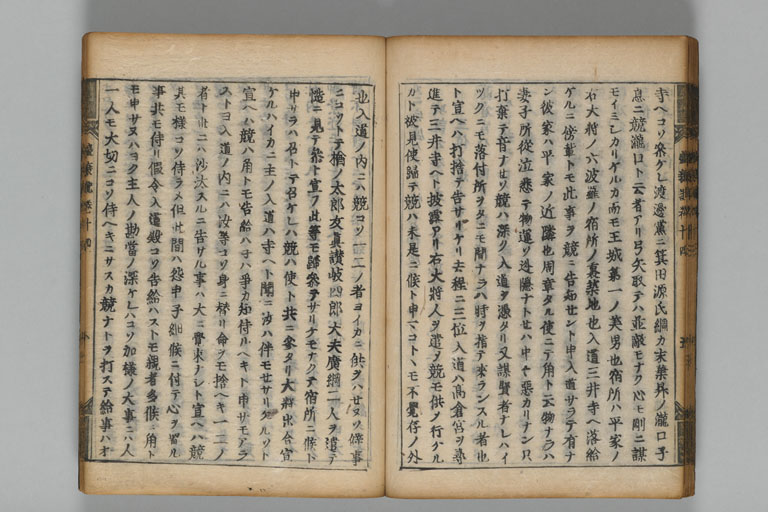 寺ヘコソ参ケレ渡邊黨ニ箕田源氏綱カ末葉昇ノ瀧口子
息ニ競瀧口ト云者アリ弓矢取テハ並敵モナク心モ剛ニ謀
モイミシカリケルカ而モ王城第一ノ美男也宿所ハ平家ノ
右大将ノ六波羅ノ宿所ノ裏築地也入道三井寺ヘ落給
ケルニ傍輩トモ此事ヲ競ニ告知セント申入道サラテ有ナ
ン彼家ハ平家ノ近隣也周章タル使ニテ角ト云物ナラハ
妻子所從泣悲テ物運ヒ逃隠ナトセハ中々悪カリナン只
打棄テ音ナセソ競ハ深ク入道ヲ憑タリ又謀賢者ナレハイ
ツクニモ落付所ヲタニモ聞ナラハ時ヲ指テ来ランスル者也
ト宣ヘハ打捨テ告サリケリ去程ニ三位入道ハ高倉宮ヲ尋
進テ三井寺ヘト披露アリ右大將人ヲ遣テ競モ供ノ行ケル
カト被見使歸テ競ハ未是ニ候ト申
コトハモ不覺仔ノ外
也入道ノ内ニハ競コソ一二ノ者ヨイカニ供ヲハセヌソ僻事
ニコソトテ檜ノ太郎友真讃岐四郎大夫廣綱二人ヲ遣テ
慥ニ見テ参ト宣フ此等モ歸参テサリケナモナクテ宿所ニ候ト
申サラハ召トテ召ケレハ競ハ使ト共ニ参タリ大將出合宣
ケルハイカニ主ノ入道ハ寺ヘト聞ニ汝ハ伴モセサリケルソト
宣ヘハ競ハ角トモ告給ハネハ爭カ知侍ルヘキト申サモアラ
スト入道ノ内ニハ汝等コソ身ニ替リ命ヲモ捨ヘキ一二ノ
者ト世ニハ沙汰スルニ告サル事ハ大ニ覺束ナシト宣ヘハ競
其モ様コソ侍ラメ但此間ハ怨申子細候ニ付テ心ヲ置ル
事共モ侍リ假令入道殿コソ告給ハストモ親者多候ニ角ト
モ申サヌハヨク主人ノ勘當ノ深ケレハコソ加様ノ大事ニハ人
一人モ大切ニコソ侍ヘキニサスカ競ナトヲ打ステ給事ハオ